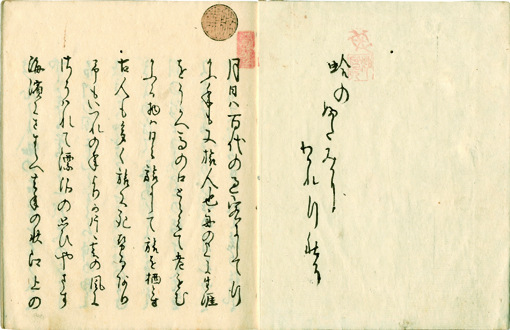 蛤のふたみに
わかれ行秋そ
月日ハ百代の過客にして行
かふ年も又旅人也舟の上に生涯
をうかへ馬の口とらえて老をむ
かふる物ハ日々旅にして旅を栖とす
古人も多く旅に死せるあり
予もいつれの年よりか片雲の風に
さそハれて漂泊の思ひやます
海濱にさすらへ去年の秋江上の